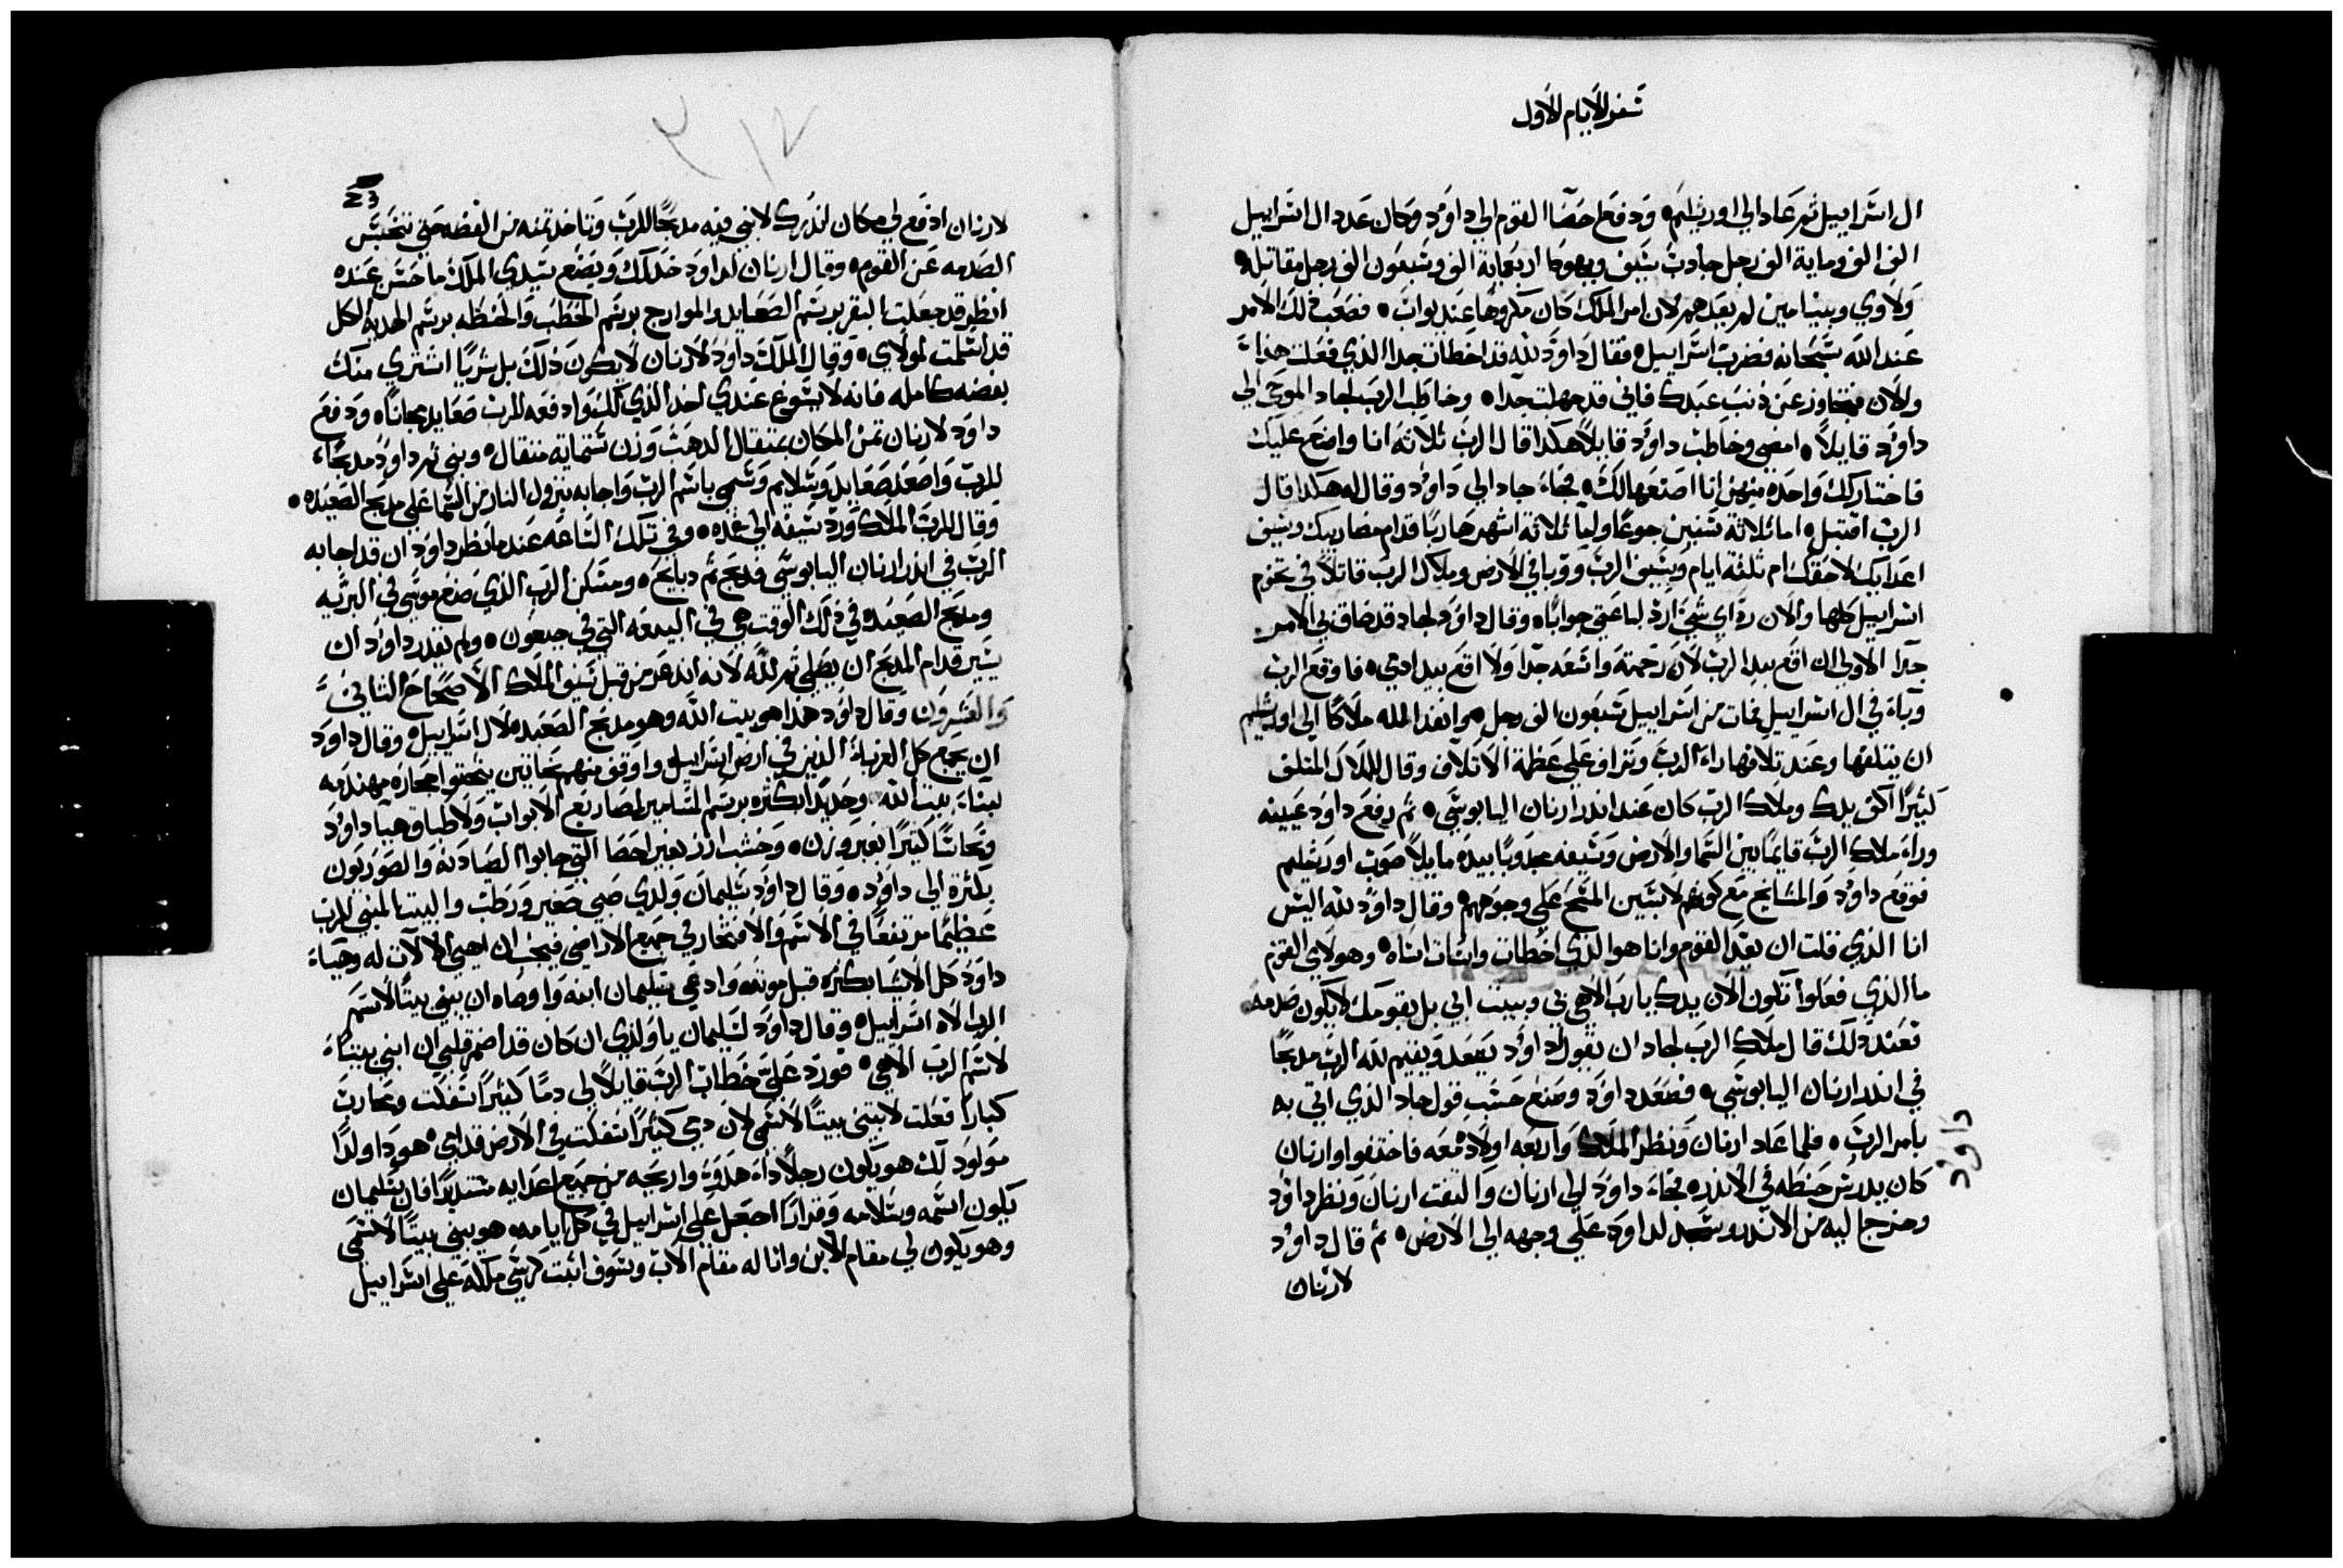 سفر الايام الاول
ال اسراييل ثم عاد الي اورشليم ودفع احصا القوم الي داوود وكان عدد ال اسراييل
الف الف وماية الف رجل جادب سيف ويهودا اربعماية الف وسبعون الف رجل مقاتله
ولاوي وبنيامين لم يعدهم لان امر الملك كان مكروها عند يواب فصعب ذلك الامر
عند الله سبحانه فضرب اسراييل فقال داوود لله قد اخطات جدا الذي فعلت هذا
والان فتجاوز عن ذنب عبدك فاني قد جهلت جدا وخاطب الرب لجاد الموحي الي
داوود قايلا امضي وخاطب داوود قايلا هكدا قال الرب ثلاثة انا واضع عليك
فاختار لك واحده منهن انا اصنعها لك فجاء جاد الي داوود وقال له هكدا قال
الرب اقتبل اما ثلاثة سنين جوعا واما ثلاثة اشهر هاربا قدام مضاربيك وسيف
اعدايك لاحقك ام ثلثة ايام وسيف الرب ووبا في الارض وملاك الرب قاتلا في تخوم
اسراييل كلها والان رد اي شي ارد لباعتي جوابا وقال داوود لجاد قد ضاق بي الامر
جدا الاولي ان اقع بيد الرب لان رحمته واسعه جدا ولا اقع بيد ادمي فاوقع الرب
وباء في ال اسراييل فمات من اسراييل سبعون الف رجل وانفد الله ملاكا الي اورشليم
ان يتلفها وعند تلافها راء الرب وتراف علي عظمة الاتلاف وقال للملاك المتلف
كثيرا اكفف يدك وملاك الرب كان عند اندر ارنان اليابوسي ثم رفع داود عينيه
وراء ملاك الرب قايما بين السما والارض وسيفه مجدوبا بيده مايلا صوب اورشليم
فوقع داود والمشايخ مع كونهم لابسين المسح علي وجوههم وقال داود لله اليس
انا الذي قلت ان يعد القوم وانا هو الذي اخطات واسات اساه وهولاي القوم
ما الذي فعلوا تكون الان يدك يارب الاهي في وببيت ابي بل بقومك لا يكون صدمه
فعند ذلك قال ملاك الرب لجاد ان يقول لداوود يصعد ويقيم لله الرب مدبحا
في اندر ارنان اليابوسي فصعد داوود وصنع حسب قول جاد الذي اتي به
بامر الرب فلما عاد ارنان ونظر الملاك واربعه اولاده معه فاختفوا وارنان
كان يدرس حنطه في الاندر فجاء داوود الي ارنان والتفت ارنان ونظر داوود
وخرج اليه من الاندر وسجد لداوود علي وجهه الي الارض ثم قال داوود
لارنان
داوود
لارنان ادفع لي مكان اندرك لابني فيه مدبحا للرب وتاخد تمنه من الفضه حتي تنحبس
الصدمه عن القوم وقال ارنان لداود خد لك ويصنع سيدي الملك ما حسن عنده
انظر قد جعلت البقر برسم الصعايد والموارج برسم الحطب والحنطه برسم الهديه الكل
قد اسلمت لمولاي وقال الملك داود لارنان لا يكون ذلك بل شريا اشتري منك
بفضه كامله فانه لا يسوغ عندي اخد الذي لك وادفعه للرب صعايد مجانا ودفع
داود لارنان تمن المكان بمتقال الدهب وزن ستماية متقال وبني تم داود مدبحا
للرب واصعد صعايد وسلايم وسمي باسم الرب واجابه بنزول النار من السما علي مدبح الصعيده
وقال للرب الملاك ورد سيفه الي غمده وفي تلك الساعه عندما نظر داود ان قد اجابه
الرب في اندر ارنان اليابوسي فدبح تم دبايح ومسكن الرب الذي صنع موسي في البريه
ومدبح الصعيده في ذلك الوقت هي في البيعه التي في جبعون ولم يقدر داود ان
يسير قدام المدبح ان يصلي تم لله لانه اندعر من قبل سيف الملاك الاصحاح الثاني
والعشرون وقال داود هدا هو بيت الله وهو مدبح الصعيده لال اسراييل وقال داود
ان يجمع كل الغرباء الذين في ارض اسراييل واوقف منهم نحاتين ينحتوا حجاره مهندمه
لبناء بيت الله وحديدا بكثره برسم المسامير لمصاريع الابواب ولاطباق هيا داود
ونحاسا كثيرا بغير وزن وخشب ارز بغير احصا التي جابوا الصيادنه والصوريون
بكثره الي داود وقال داود سليمان ولدي صبي صغير ورطب والبيت المبني للرب
عظيما مرتفعا في الاسم والافتخار في جميع الاراضي فيجب ان اهيي الالات له وهياء
داود كل الاشيا بكثره قبل موته وادعي سليمان ابنه واوصاه ان يبني بيتا لاسم
الرب الاه اسراييل وقال داود لسليمان يا ولدي ان كان قد اضمر قلبي ان ابني بيتا
لاسم الرب الاهي فورد علي خطاب الرب قايلا لي دما كثيرا سفكت ومحارب
كبارا فعلت لا تبني بيتا لاسمي لان دمي كثيرا سفكت في الارض قدامي هو دا ولدا
مولود لك هو يكون رجلا داء هدوة واريحه من جميع اعدايه مستديرا فان سليمان
يكون اسمه وسلامه وقرارا اجعل علي اسراييل في كل ايامه هو يبني بيتا لاسمي
وهو يكون لي مقام الابن وانا له مقام الاب وسوف اتبت كرسي ملكه علي اسراييل